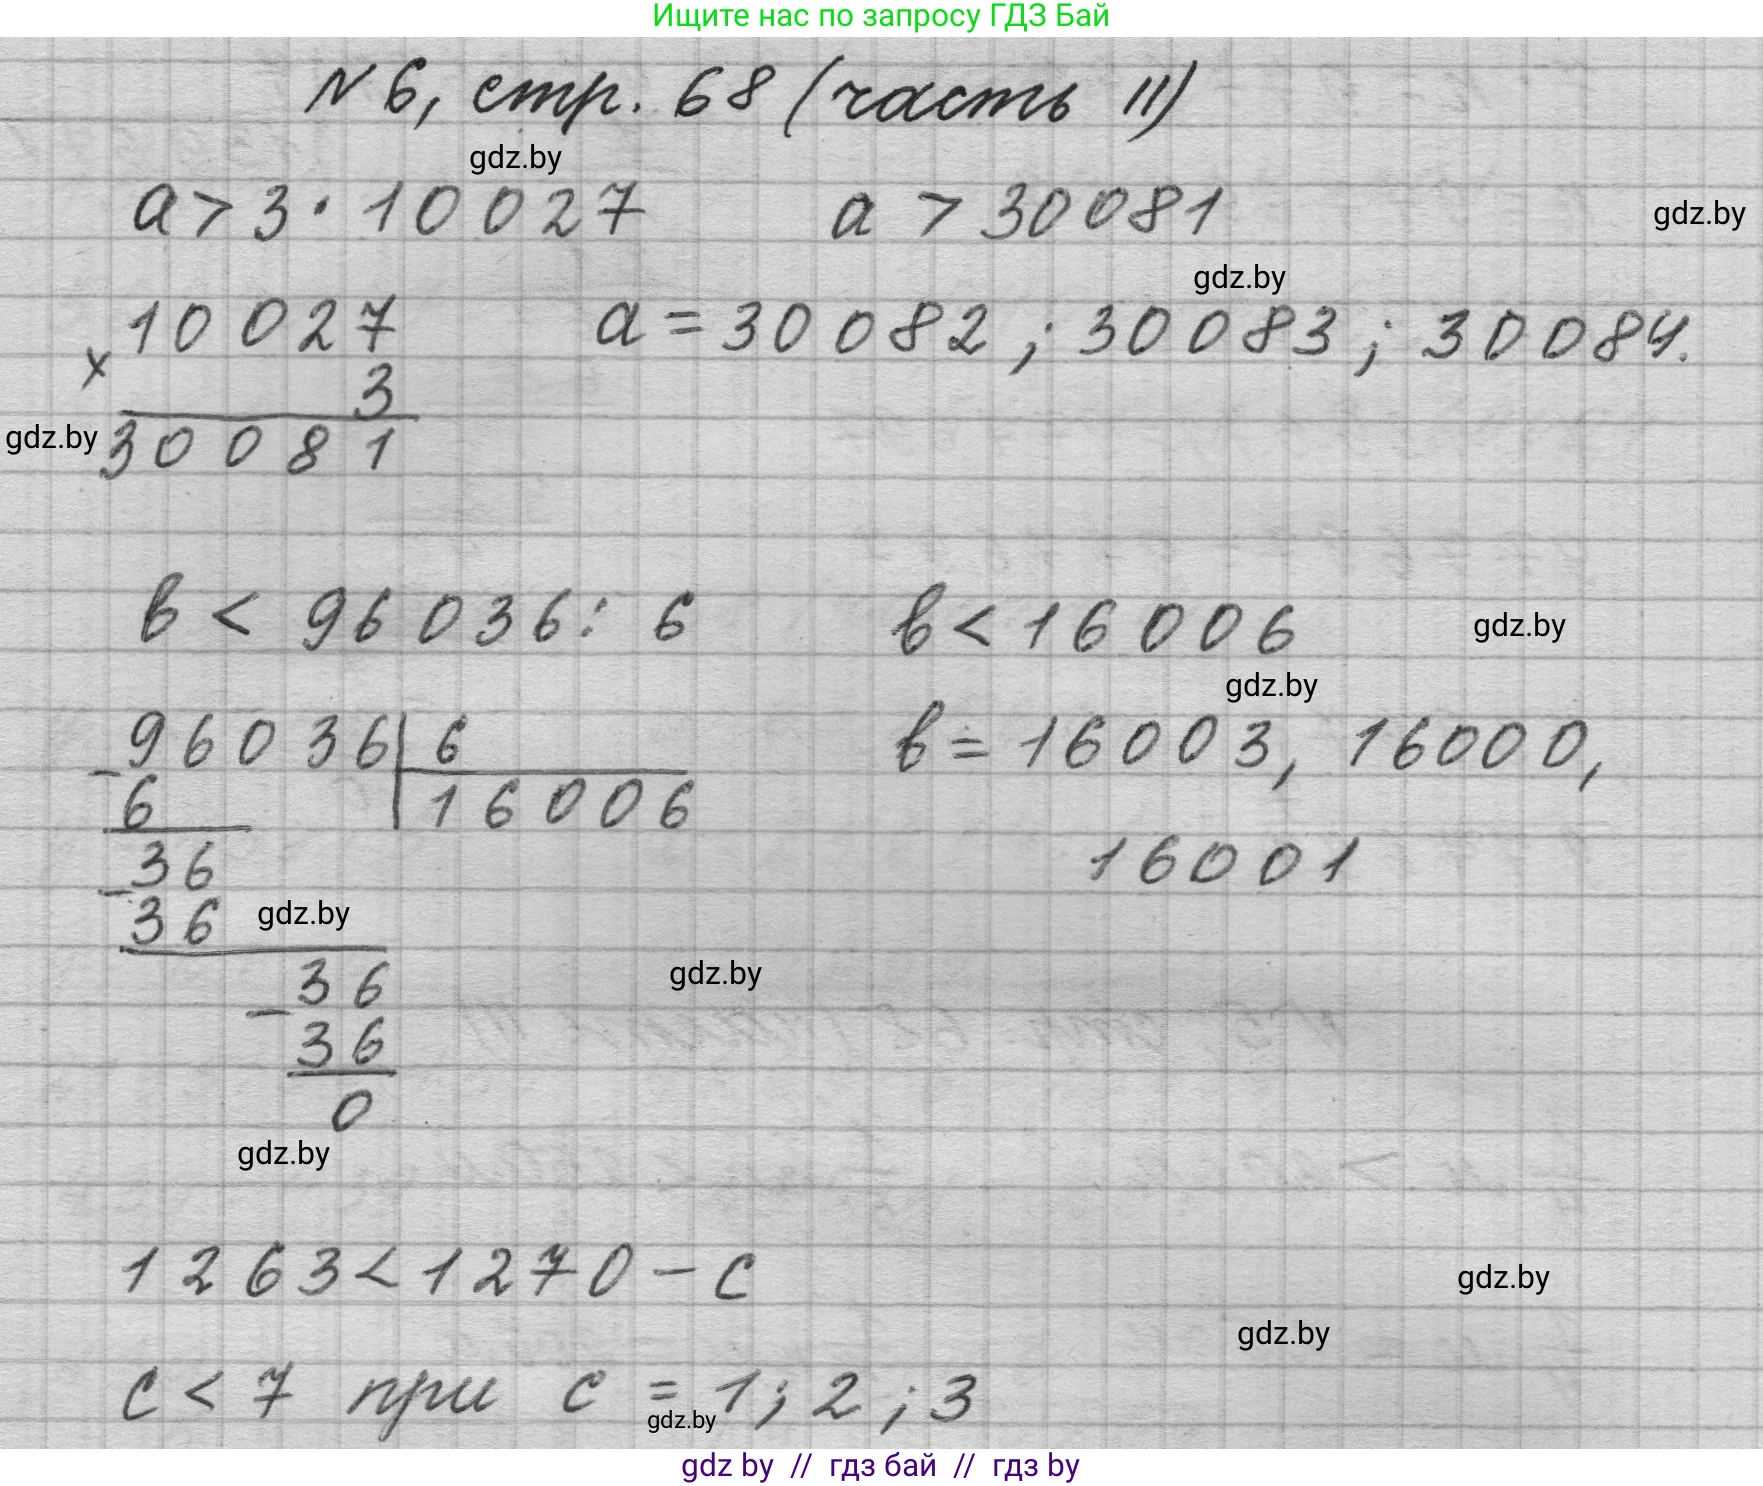 Ищите нас по запросу ГДЗ Бай
N 6, стр. 68 (часть II)
gdz.by
a > 3 · 10027 a > 30081
gdz.by
gdz.by
10027 a = 30082 ; 30083 ; 30084.
x 3
gdz.by
30081
в < 96036 : 6 в < 16006
gdz.by
gdz.by
96036 6 в = 16003, 16000,
- 6 16006
36 16001
- 36
gdz.by
gdz.by
36
- 36
0
gdz.by
1263 < 1270 - c
gdz.by
gdz.by
c < 7 при c = 1 ; 2 ; 3
gdz.by
gdz by // гдз бай // гдз by